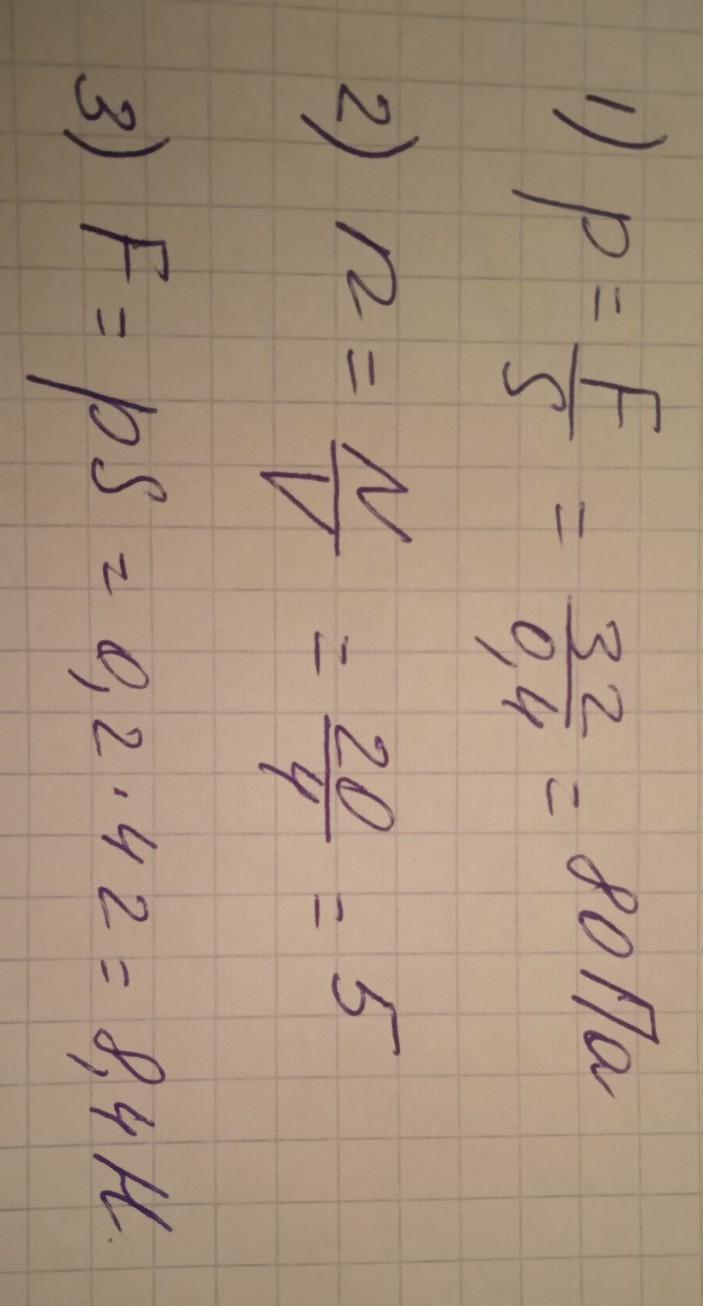 1) p = F/S = 32/0,4 = 80 Па
2) n = N/V = 20/4 = 5
3) F = pS = 0,2 · 42 = 8,4 Н.